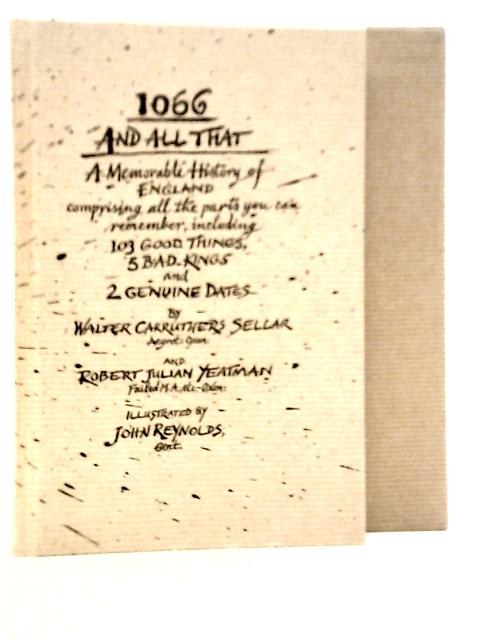 1066
AND ALL THAT
A Memorable History of
ENGLAND
comprising all the parts you can
remember, including
103 GOOD THINGS,
5 BAD KINGS
and
2 GENUINE DATES
By
WALTER CARRUTHERS SELLAR
Aegrot: Oxon
AND
ROBERT JULIAN YEATMAN
Failed M.A. etc. Oxon:
ILLUSTRATED BY
JOHN REYNOLDS,
Gent.